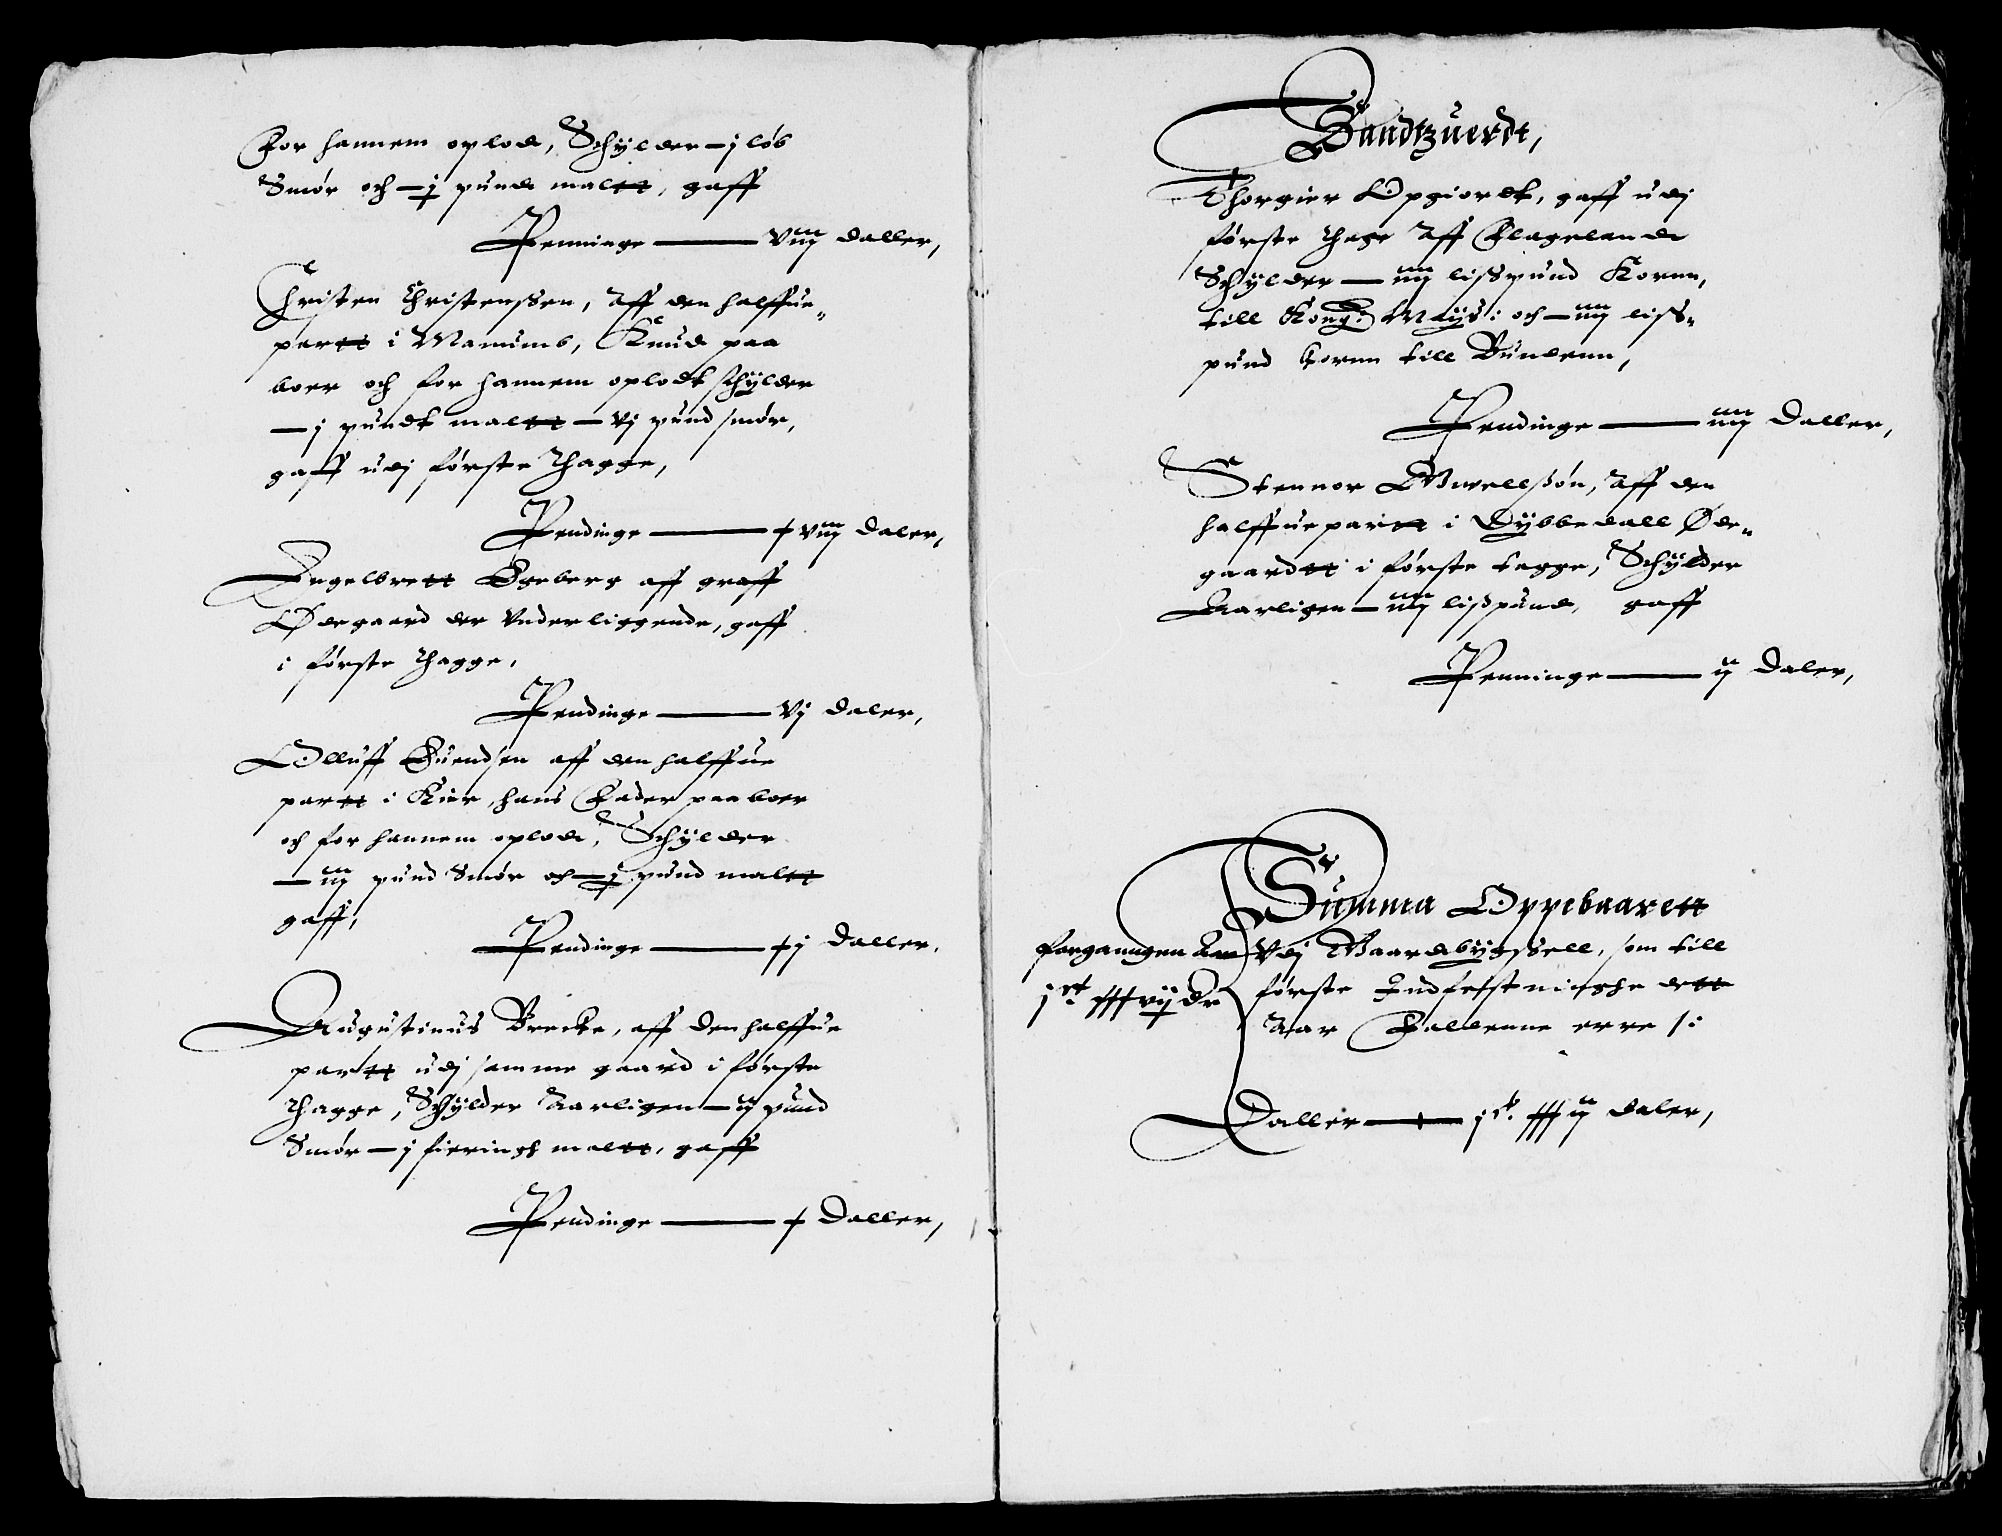 For hannem oplod, Schÿlder – j løb
Smør och – j pund maltt, gaff
Penninge – viij daller,
Christen Christenssen, Aff den halffue
partt i Mamumb, Knud paa
boer och for hannem oplodt schÿlder
– j pundt maltt – vj pund smør,
gaff udj første Thagge,
Pendinge – xviij Daler,
Engelbrett Egeberg aff graff
Ødegaard der Vnderliggende, gaff
i første Thagge,
Pendinge – vj daler,
Olluff Suendsen aff den halffue
partt i Kier, hans Fader paa boer
och for hannem oplod, Schÿlder
– iij pund Smør och – j pund maltt
gaff,
Pendinge – xj Daller,
Augustinus Brecke, aff den halffue
partt udj samme gaard i første
Thagge, Schÿlder Aarligen – ij pund
Smør – j fieringh maltt, gaff
Pendinge – x Daller,
Sandtzuerdt,
Thorgier Opgiordt, gaff udj
første Thage Aff Flageland
Schÿlder – iiij lisspund Korn,
till Kong: Mayts: och – iiij liss-
pund korn till Bundenn,
Pendinge – iiij Daller,
Stennor, Aff den
halffue partt i Dÿbbedall Øde-
gaardtt i første tagge, Schÿlder
Aarligen – iiij lisspund, gaff
Penninge – ij Daler,
Summa Oppebaarett
Vdj Gaardbÿgssell, som till
første Indfestninghe dett
Aar Fallenne erre /:
forgangen Aar
jct xxxvij dr
Daller – jct. xxxij daler,